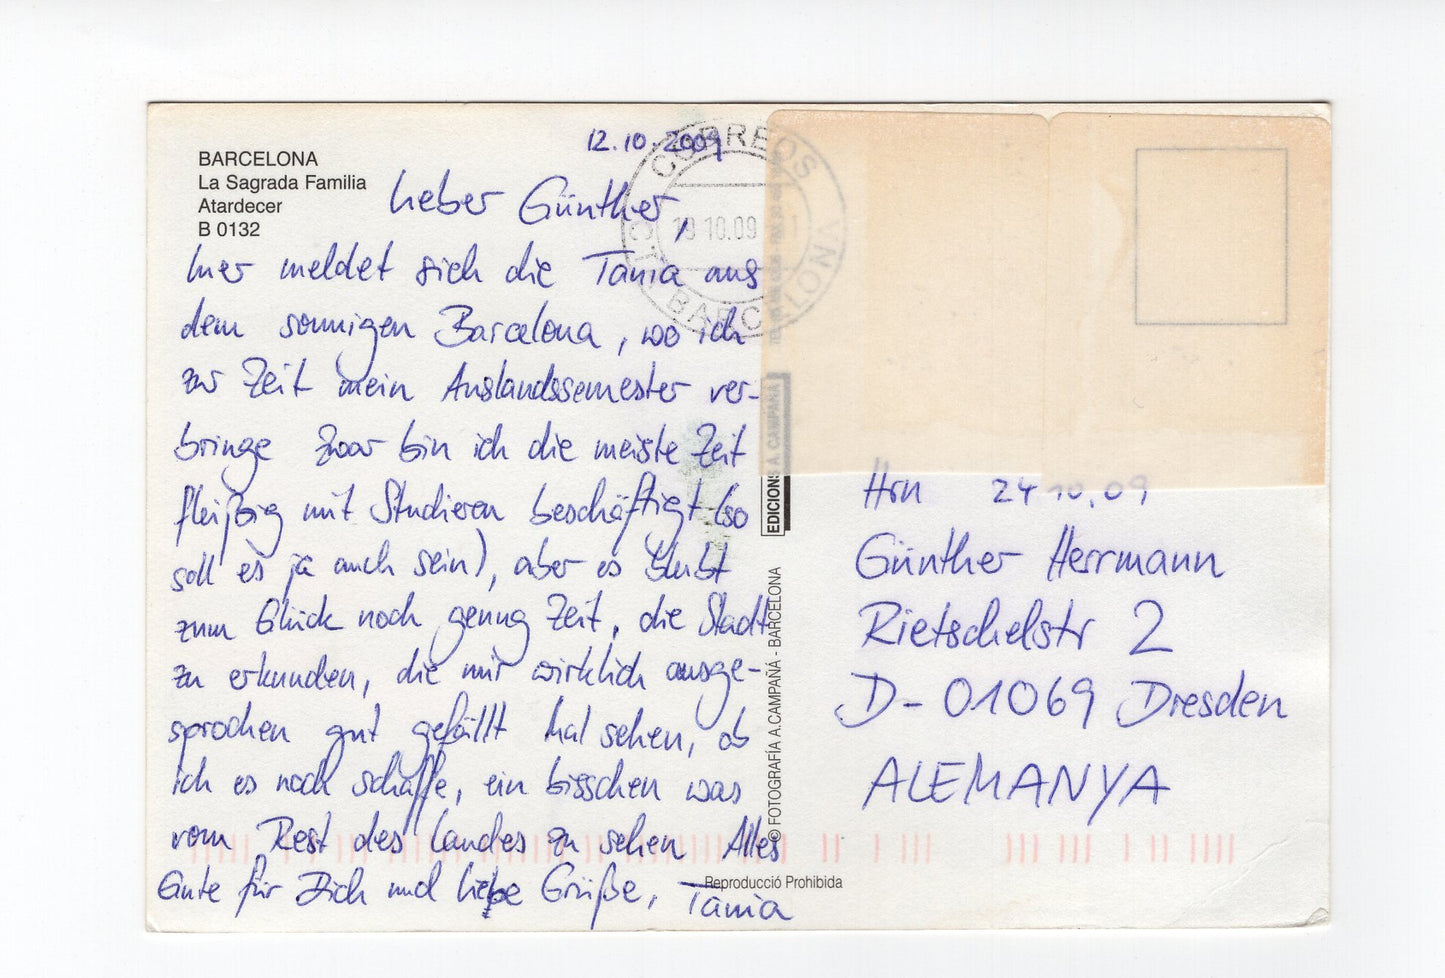 BARCELONA
La Sagrada Familia
Atardecer
B 0132
12.10.2009
CORREOS
10.09
BARCELONA
Lieber Günther,
hier meldet sich die Tania aus
dem sonnigen Barcelona, wo ich
zur Zeit mein Auslandssemester ver-
bringe Zwar bin ich die meiste Zeit
fleißig mit Studieren beschäftigt (so
soll es ja auch sein), aber es bleibt
zum Glück noch genug Zeit, die Stadt
zu erkunden, die mir wirklich ausge-
sprochen gut gefällt Mal sehen, ob
ich es noch schaffe, ein bisschen was
vom Rest des Landes zu sehen Alles
Gute für Dich und liebe Grüße, Tania
EDICIONS A. CAMPAÑÁ
© FOTOGRAFÍA A.CAMPAÑÁ - BARCELONA
Reproducció Prohibida
Hrn 24 10.09
Günther Herrmann
Rietschelstr 2
D-01069 Dresden
ALEMANYA